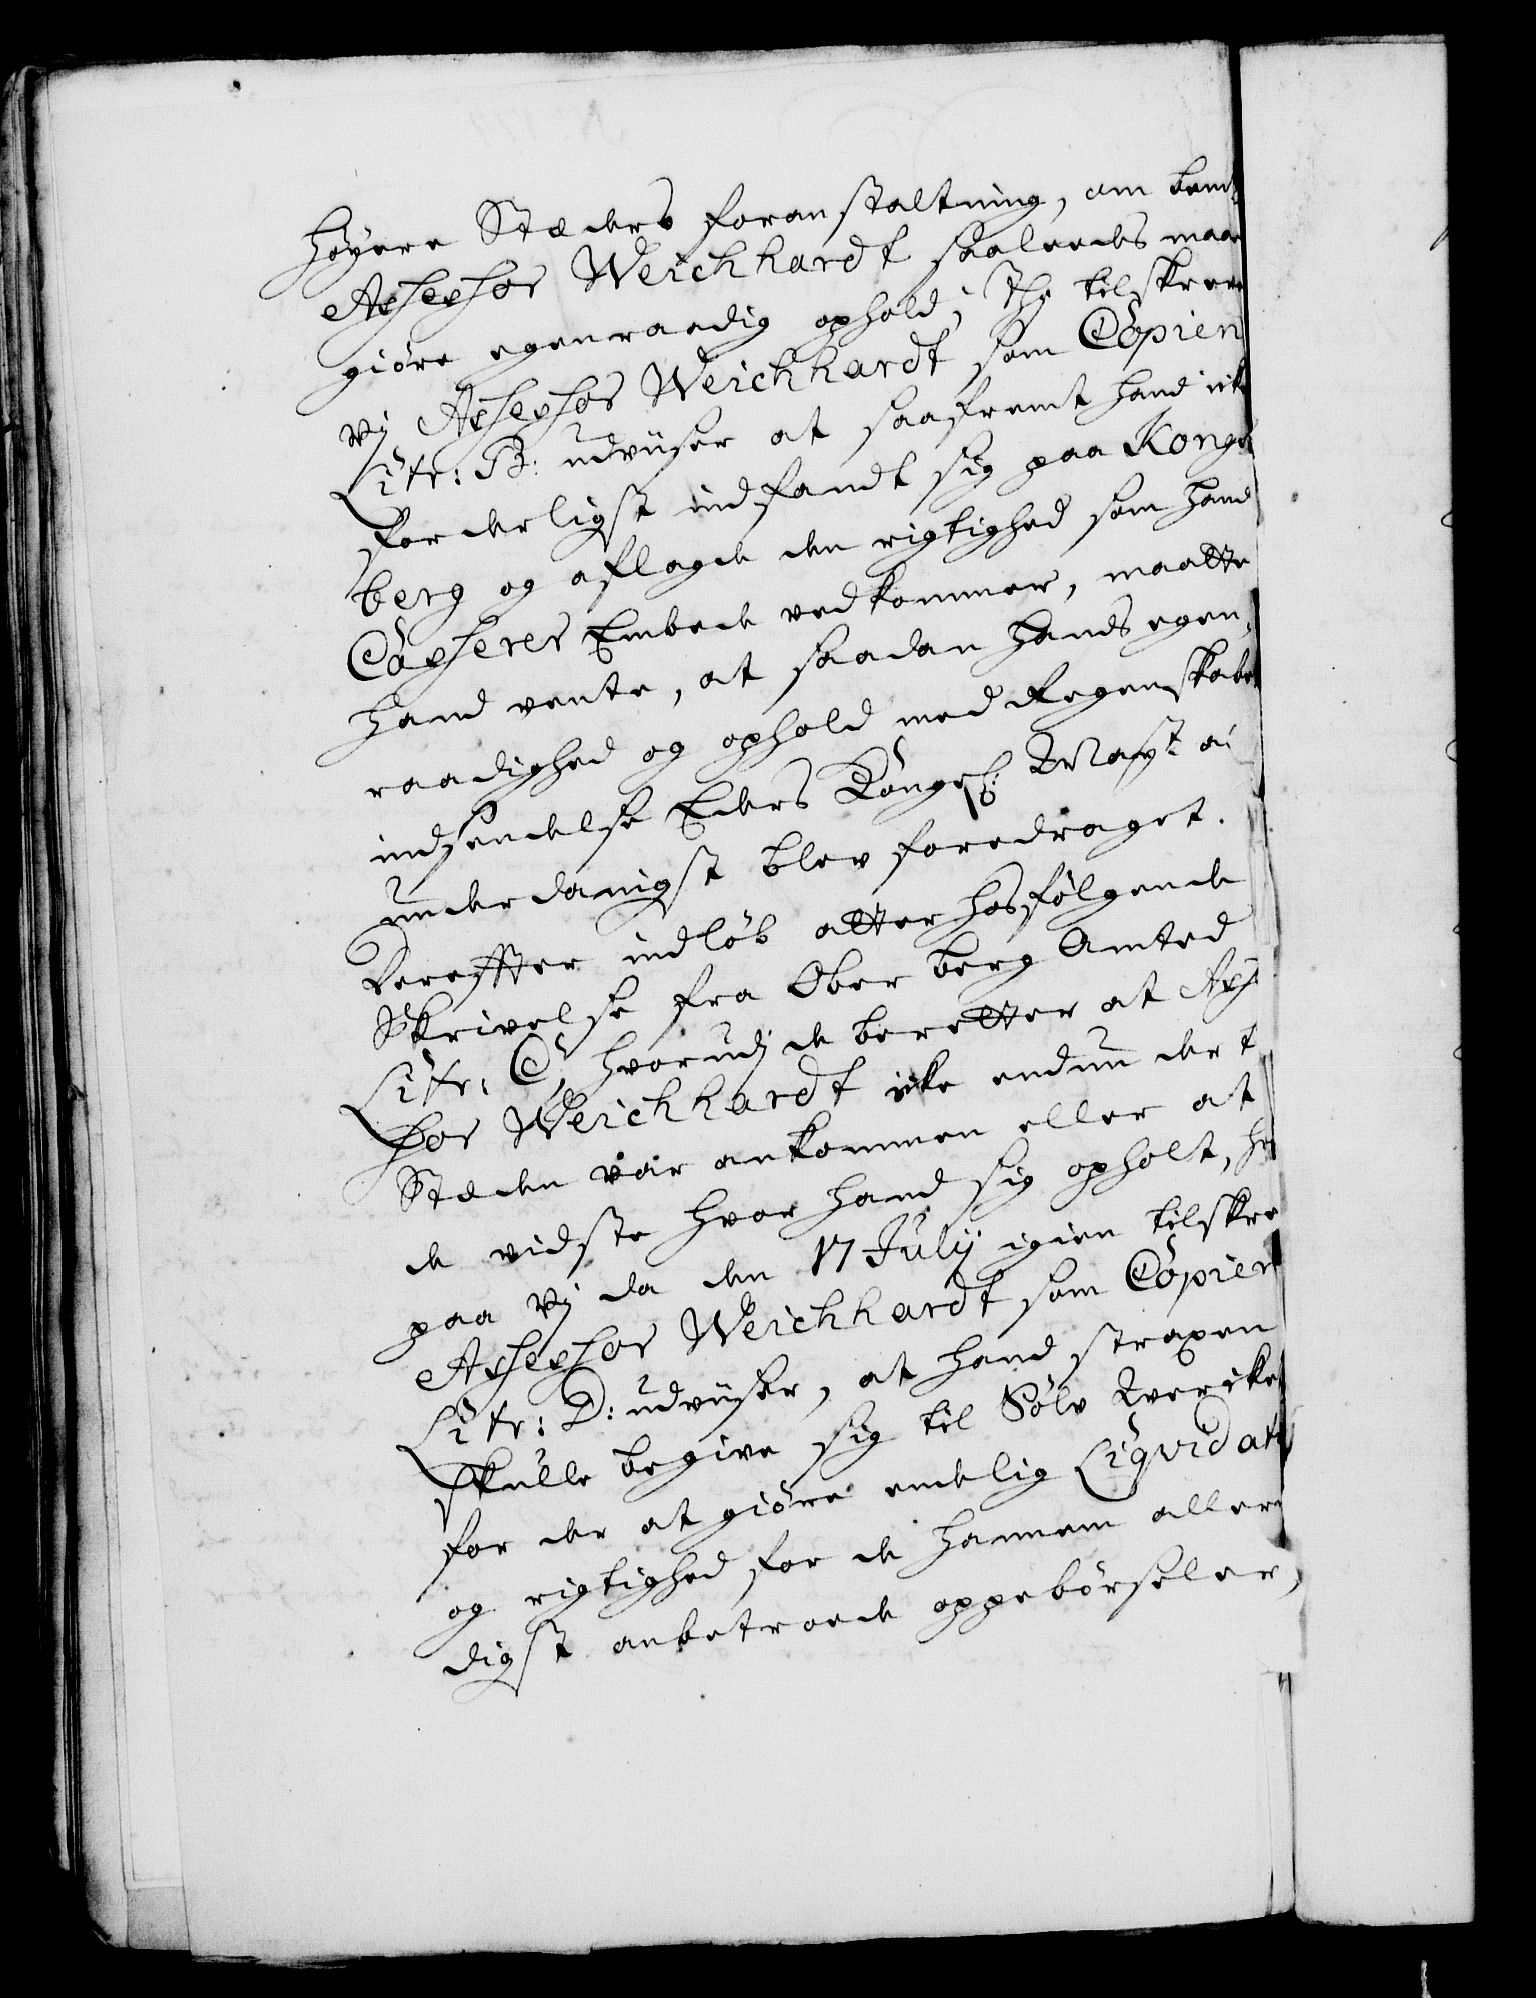 høyere Stæders foranstaltning, om bemt
Assessor Weichhardt saaleedes maae
giöre egenraadig ophold; Thj tilskreve
vj Assessor Weichhardt som Copien
Litr: B: udviiser at saafremt hand icke
forderligst indfandt sig paa Kongs
berg og aflagde den rigtighed som hand
Casserer Embede vedkommer, maatte
hand vente, at saadan hands egen,
raadighed og ophold med Regenskabet
indsendelse Eders Kongel: Mayt a
underdanigst blev foredraget.
Derefter indløb atter hosfölgende
Skrivelse fra Ober berg Amted
Litr: C, hvorudj de beretter at Asse
sor Weichhardt icke endnu der t
Stæden var ankommen eller at
de vidste hvor hand sig opholt, hv
paa vj da den 17 Julij igien tilskre
Assessor Weichhardt som Copien
Litr: D: udviiser, at hand straxen
skulle begive sig til Sölv Wercket
for der at giöre endelig Liqvidati
og rigtighed for de hannem allern
digst anbetroede oppebörseler,